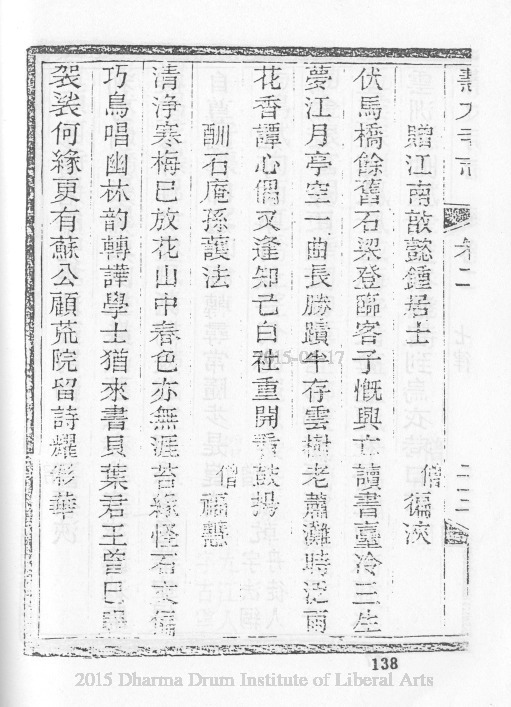 卷二
贈江南敨懿鍾居士
僧
伏馬橋餘舊石梁登臨客子慨興亡讀書臺冷三生
夢江月亭空一曲長勝蹟半存雲樹老蕭灘時泛雨
花香譚心偶又逢知己白社重開看鼓揚
酬石庵孫護法
僧福慧
清淨寒梅已放花山中春色亦無涯苔緣怪石文偏
巧鳥唱幽林韵轉譁學士猶來書貝葉君王曾已
袈裟何緣更有蘇公顧荒院留詩耀彩華
138
2015 Dharma Drum Institute of Liberal Arts